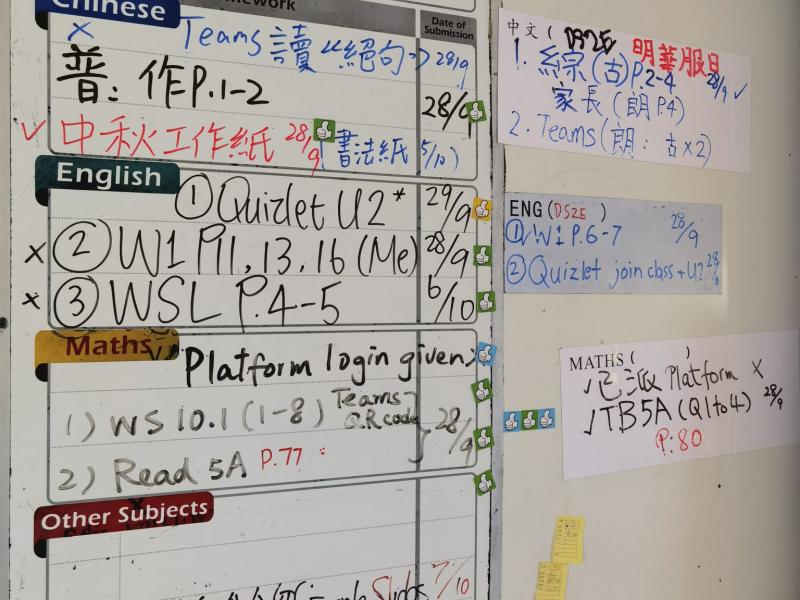 Chinese
Date of Submission
x Teams 讀 "絕句" 28/9
普: 作P.1-2 28/9
✓ 中秋工作紙 28/9 (書法紙 5/10)
English
① Quizlet U2* 29/9
x ② W1 P11, 13, 16 (Me) 28/9
x ③ WSL P.4-5 6/10
Maths
Platform login given
1) WS 10.1 (1-8) Teams QR code 28/9
2) Read 5A P.77
Other Subjects
Slides 7/10
中文 ( DS2E 明華服日
1. 綜(古)P.2-4 28/9 ✓
家長(朗 P.4)
2. Teams (朗: 古x2)
ENG (DS2E )
① W1 P.6-7 28/9
② Quizlet join class + U2 28/9
MATHS ( )
✓已派 Platform x
✓TB5A (Q1 to 4) 28/9
P.80